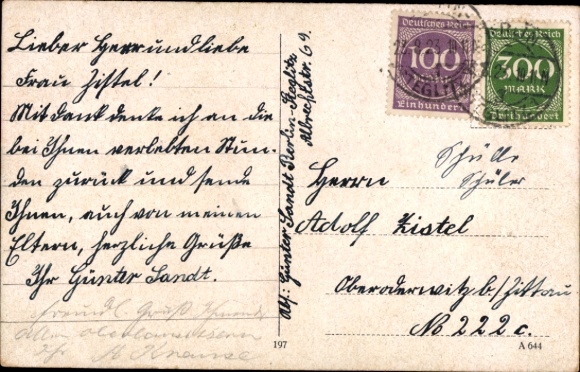 Lieber Herr und liebe
Frau Zistel!
Mit Dank denke ich an die
bei Ihnen verlebten Stun-
den zurück und sende
Ihnen, auch von meinen
Eltern, herzliche Grüße
Ihr Günter Sandt.
Freundl. Gruß
Ihr A Krause
Abs: Günter Sandt Berlin-Steglitz
Albrechtstr. 69.
Deutsches Reich
100
Mark
Einhundert
Deutsches Reich
300
MARK
Dreihundert
STEGLITZ
Schüler
Herrn
Adolf Zistel
Oberoderwitz b/Zittau
No 222c.
197
A 644